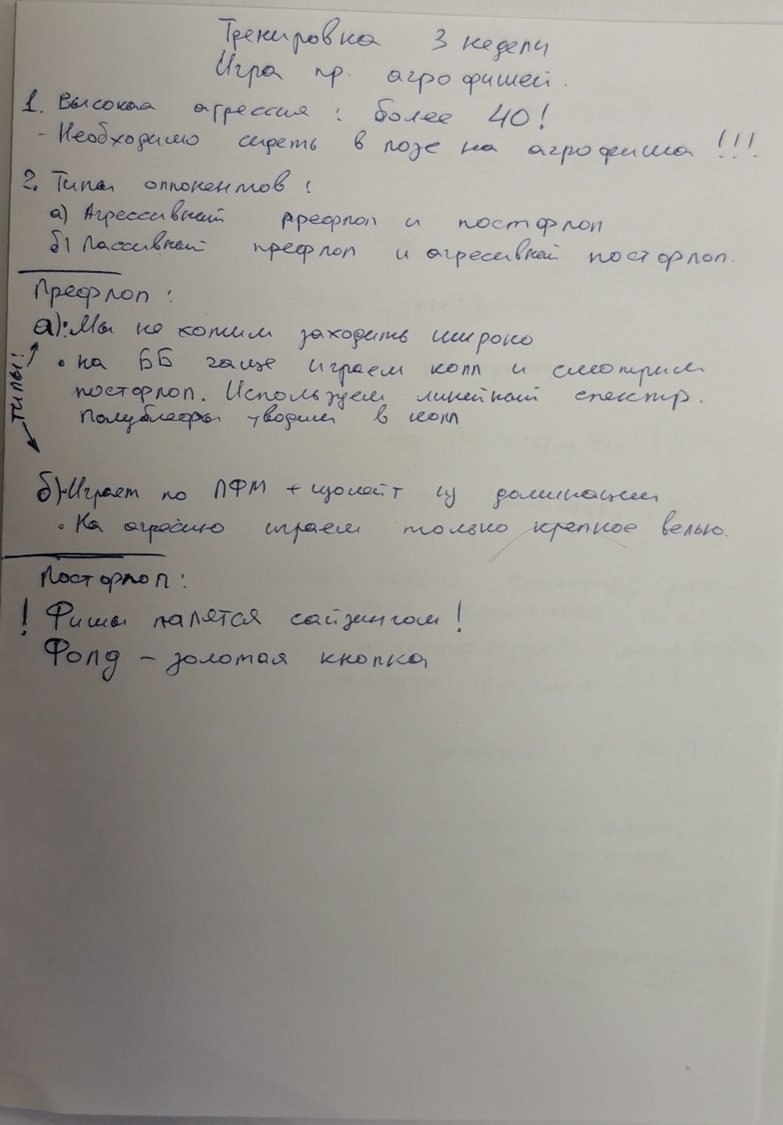 Тренировка 3 недели
Игра пр. агрофишей.
1. Высокая агрессия : более 40!
- Необходимо сидеть в позе на агрофиша !!!
2. Типы оппонентов :
а) Агрессивный префлоп и постфлоп
б) Пассивный префлоп и агресивный постфлоп.
Префлоп :
Типы!
а): Мы не хотим заходить широко
• на ББ чаще играем колл и смотрим
постфлоп. Используем линейный спектр.
Полублефы уводим в колл
б) Играет по ПФМ + изолейт из доминации
• На агресию играем только крепкое велью.
Постфлоп :
! Фишы палятся сайзингом !
Фолд - золотая кнопка